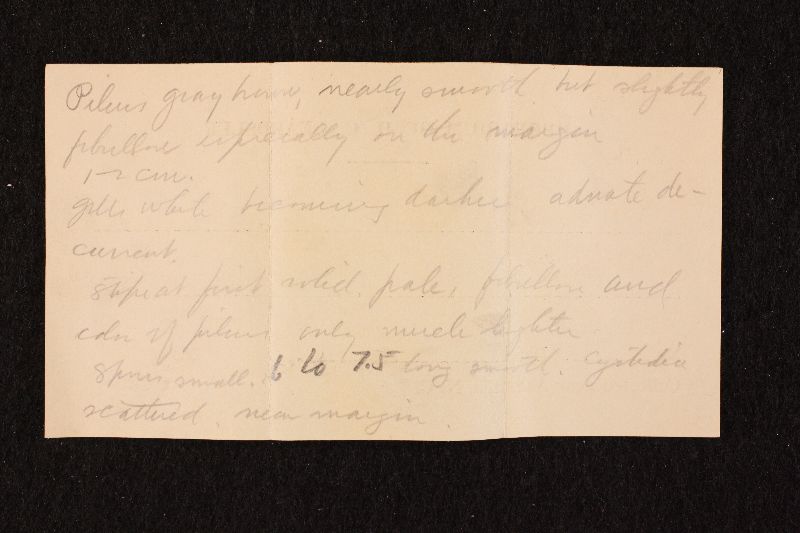 Pileus gray brown, nearly smooth but slightly
fibrillose especially on the margin
1-2 cm.
gills white becoming darker adnate de-
current.
Stipe at first solid, pale, fibrillose and
color of pileus only much lighter
Spores small. 6 to 7.5 long smooth. Cystidia
scattered near margin.